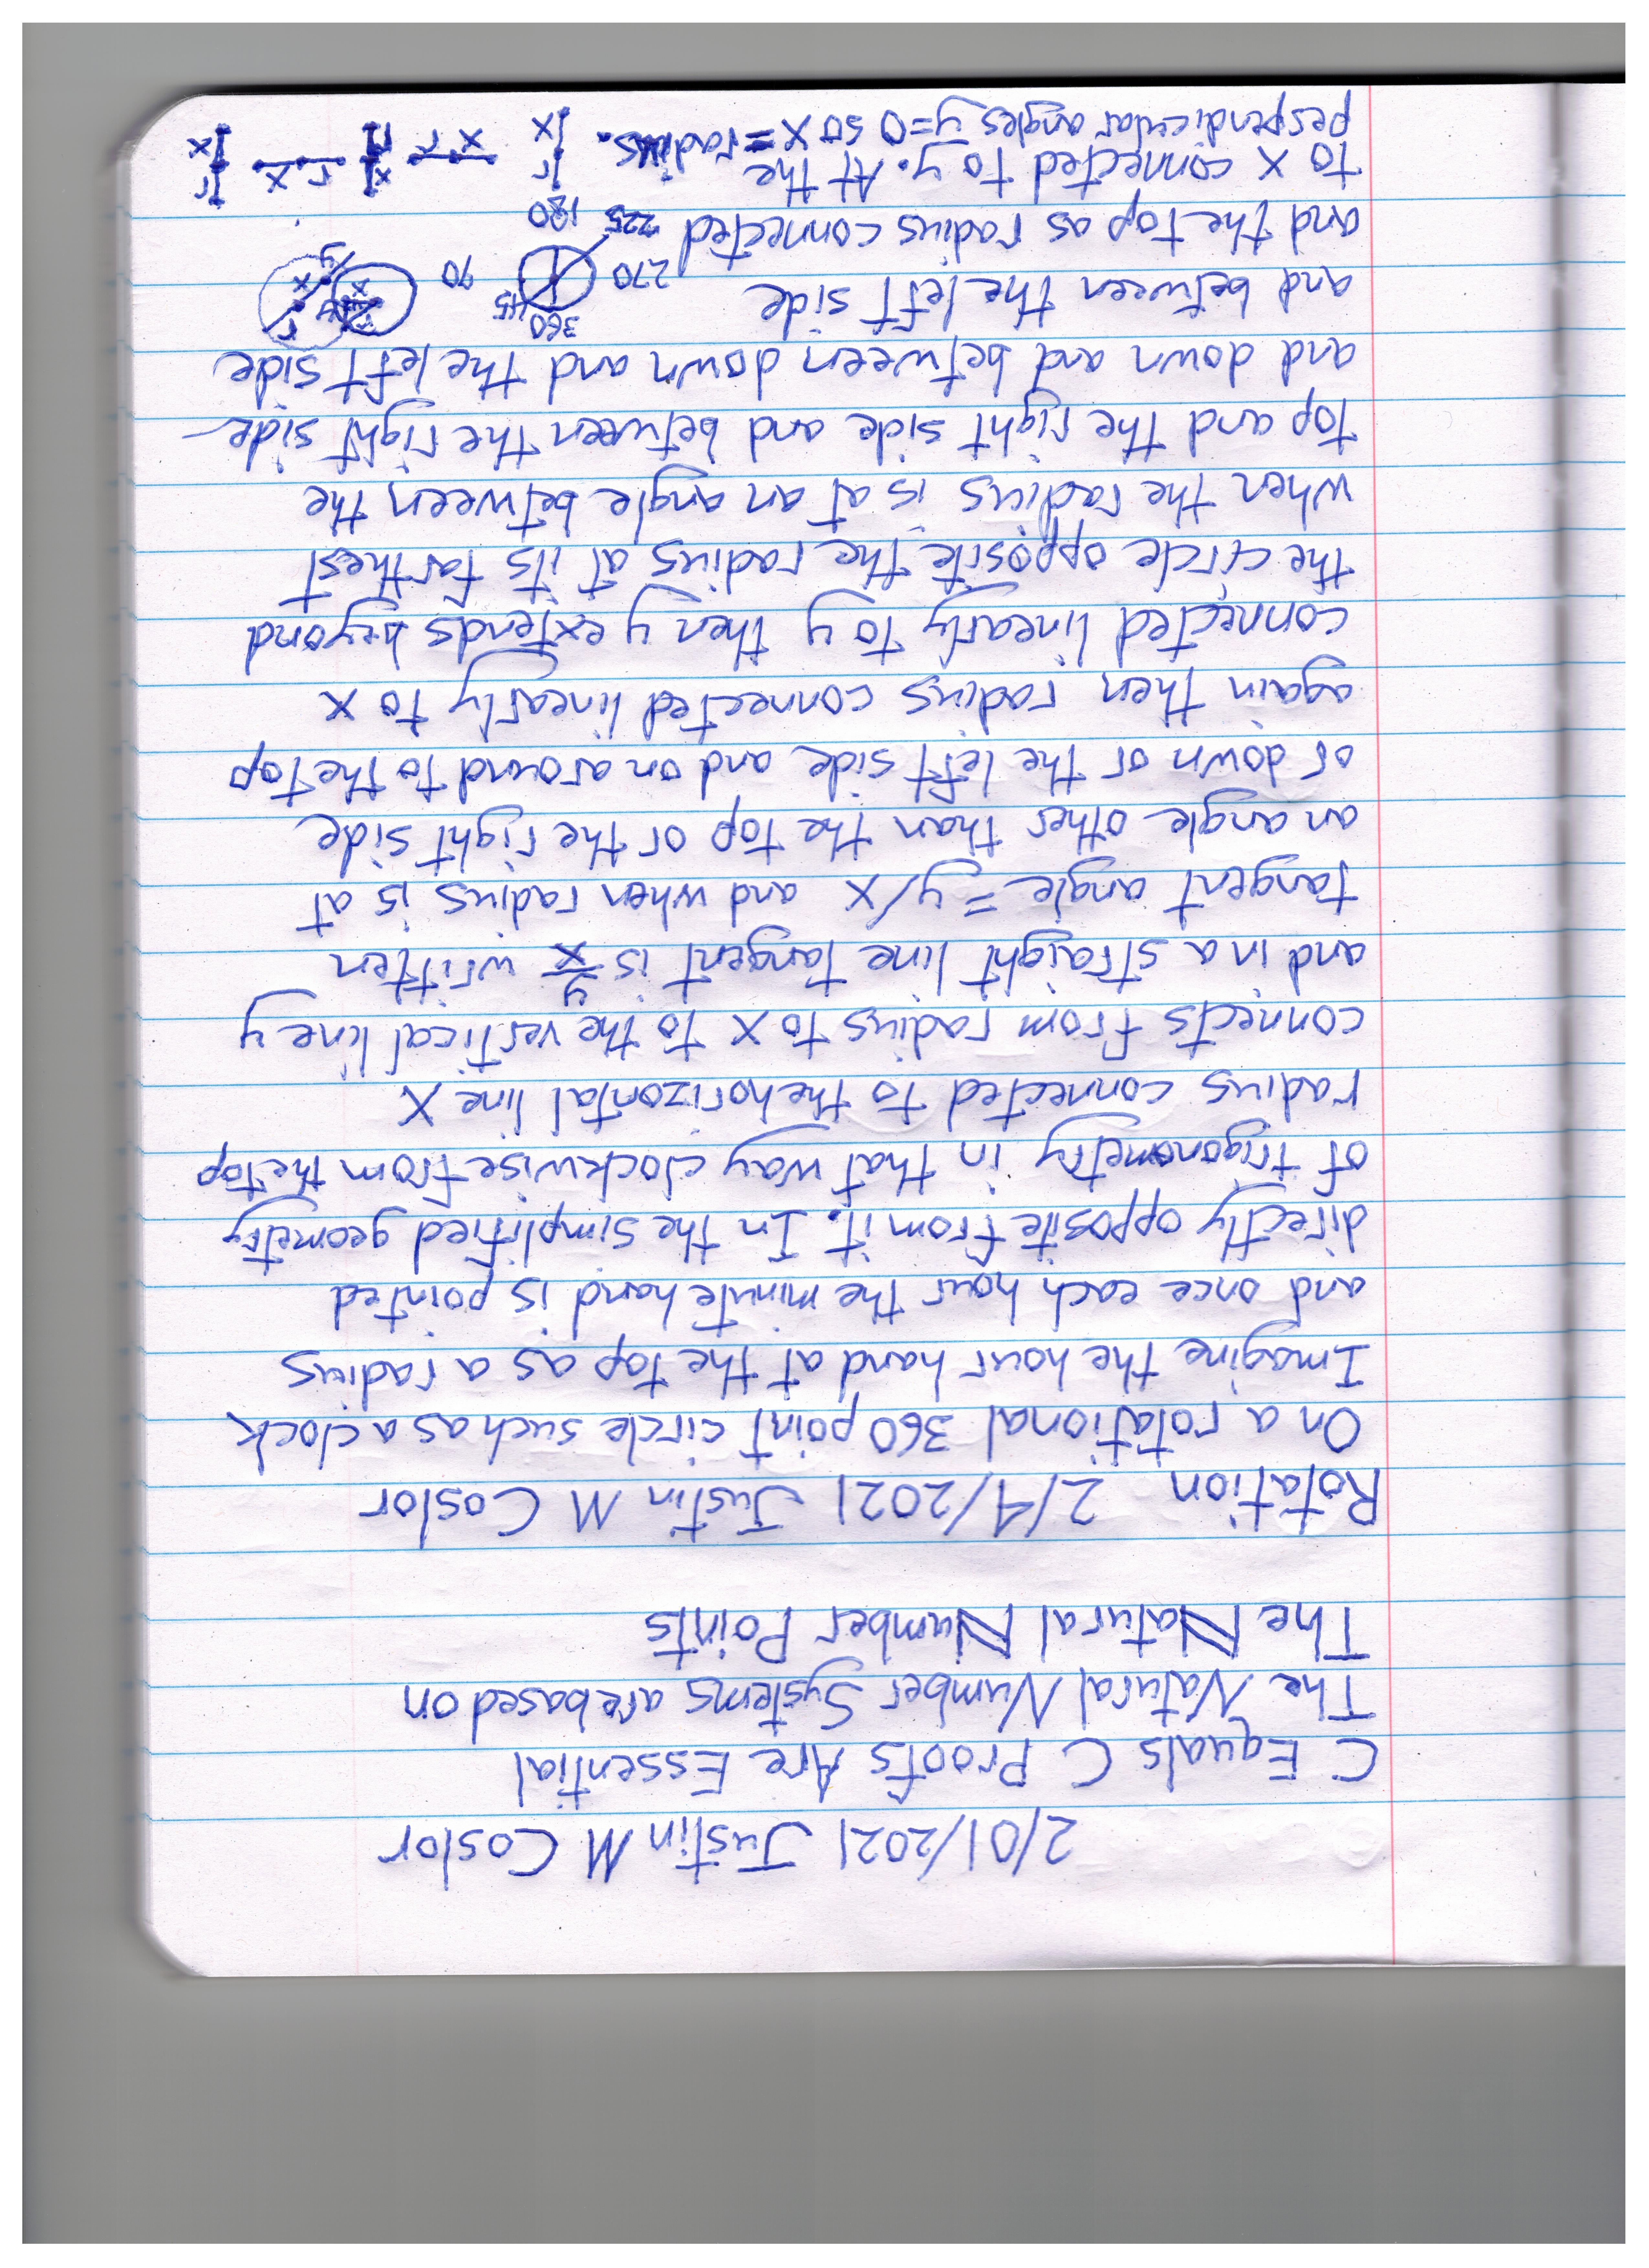 2/01/2021 Justin M Coslor
C Equals C Proofs Are Essential
The Natural Number Systems are based on
The Natural Number Points
Rotation 2/4/2021 Justin M Coslor
On a rotational 360 point circle such as a clock
Imagine the hour hand at the top as a radius
and once each hour the minute hand is pointed
directly opposite from it. In the simplified geometry
of trigonometry in that way clockwise from the top
radius connected to the horizontal line X
connects from radius to X to the vertical line y
and in a straight line tangent is y/x written
tangent angle = y/x and when radius is at
an angle other than the top or the right side
or down or the left side and on around to the top
again then radius connected linearly to x
connected linearly to y then y extends beyond
the circle opposite the radius at its farthest
when the radius is at an angle between the
top and the right side and between the right side
and down and between down and the left side
and between the left side
and the top as radius connected
to x connected to y. At the
perpendicular angles y=0 so x=radius.
360
45
270
90
225
180
r
x
y
r
x
y
r
x
x r
x
r
r x
r
x